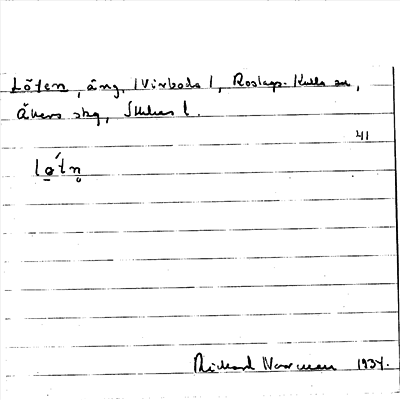 Löten, äng, (Virboda), Roslags-Kulla sn,
Åkers skg, Sthlms l.
41
lø̀tn̥
Rickard Norrman 1934.